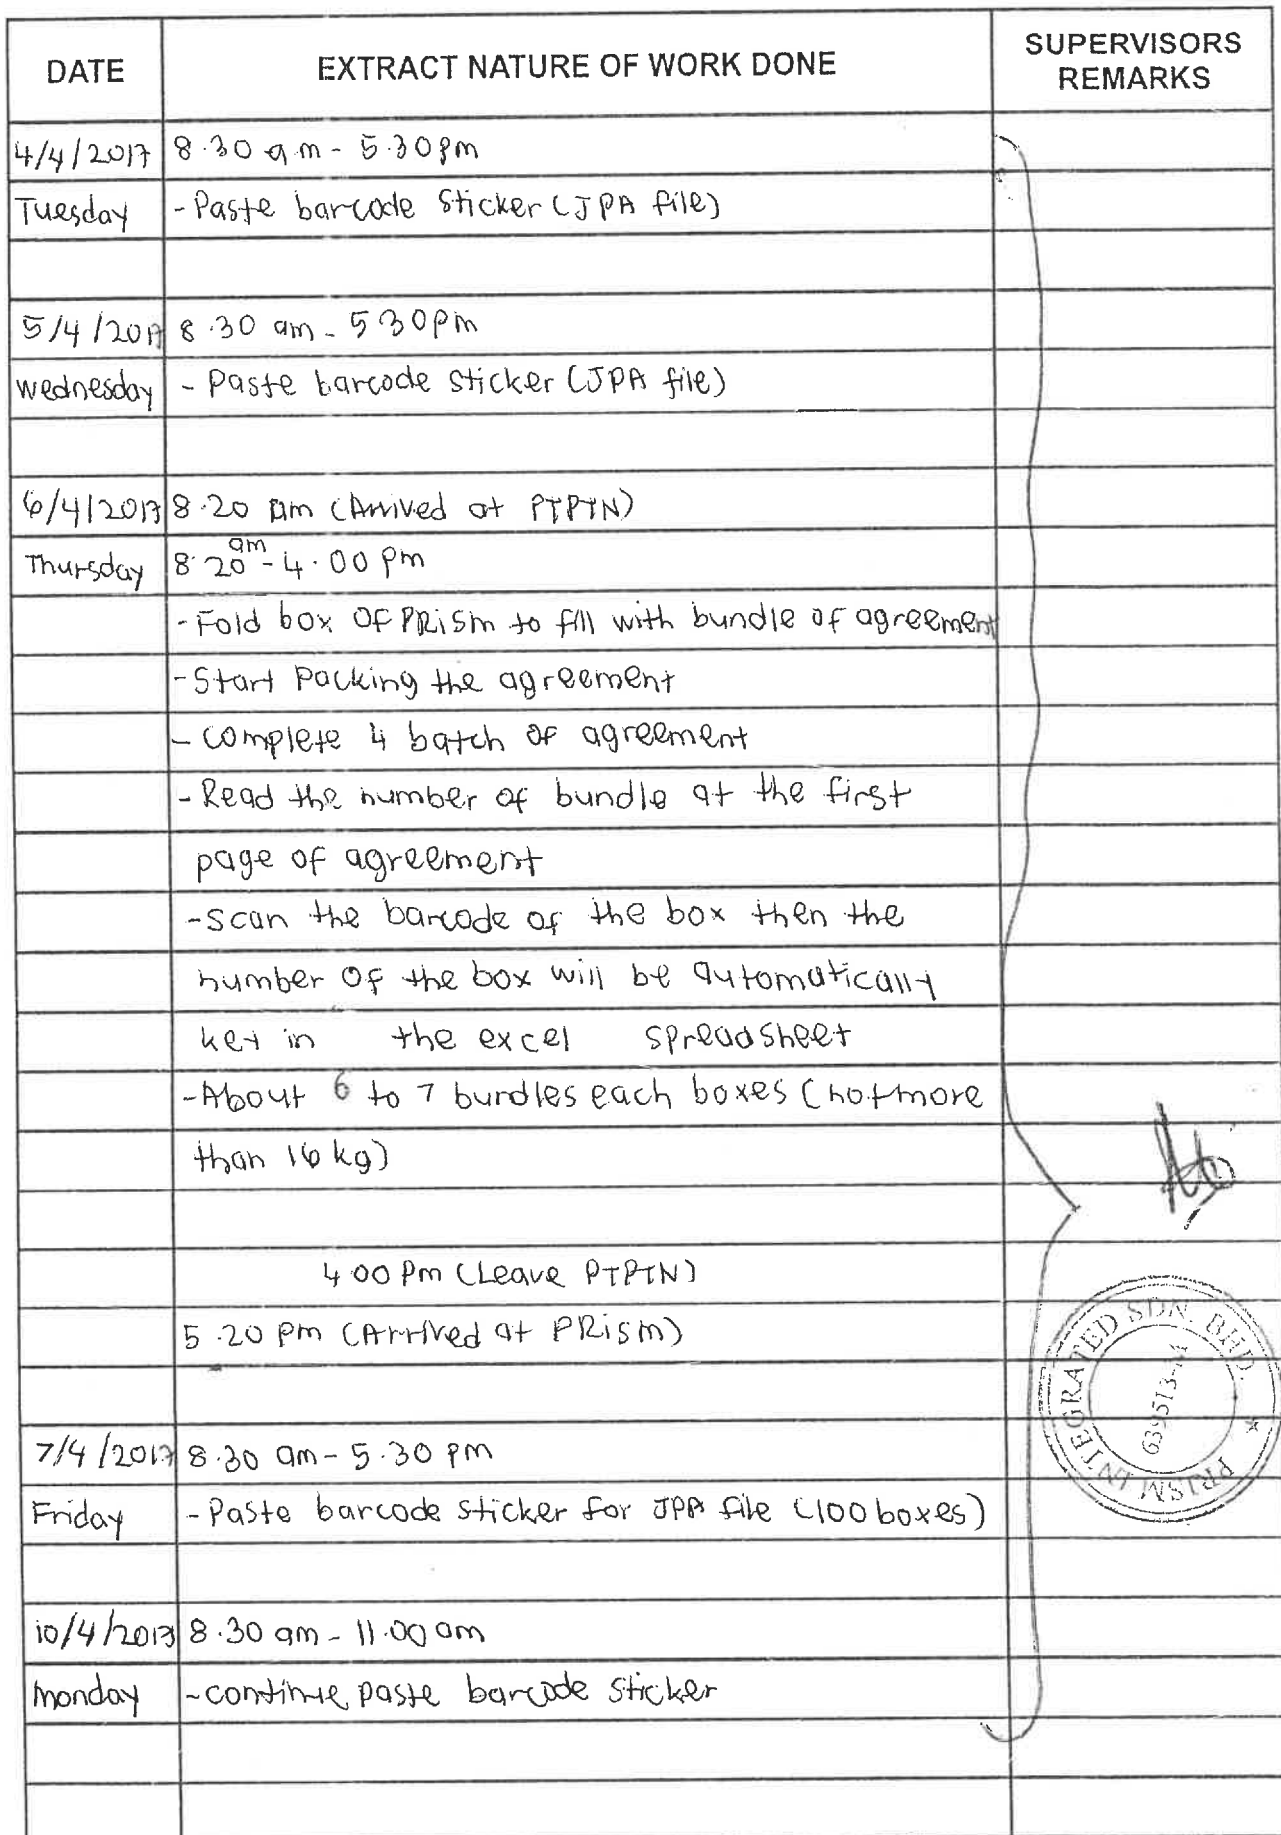 DATE EXTRACT NATURE OF WORK DONE SUPERVISORS REMARKS
4/4/2017 8.30 am - 5.30pm
Tuesday - Paste barcode sticker (JPA file)
5/4/2017 8.30 am - 5 30pm
wednesday - Paste barcode sticker (JPA file)
6/4/2017 8.20 am (Arrived at PTPTN)
Thursday 8.20 am - 4.00 pm
- Fold box of PRism to fill with bundle of agreement
- Start packing the agreement
- complete 4 batch of agreement
- Read the number of bundle at the first
page of agreement
- Scan the barcode of the box then the
number of the box will be automatically
key in the excel spreadsheet
- About 6 to 7 bundles each boxes (not more
than 16 kg)
4 00 pm (Leave PTPTN)
5.20 pm (Arrived at PRism)
7/4/2017 8.30 am - 5.30 pm
Friday - Paste barcode sticker for JPA file (100 boxes)
10/4/2017 8.30 am - 11.00 am
monday - continue paste barcode sticker
PRISM INTEGRATED SDN. BHD.
639513-M